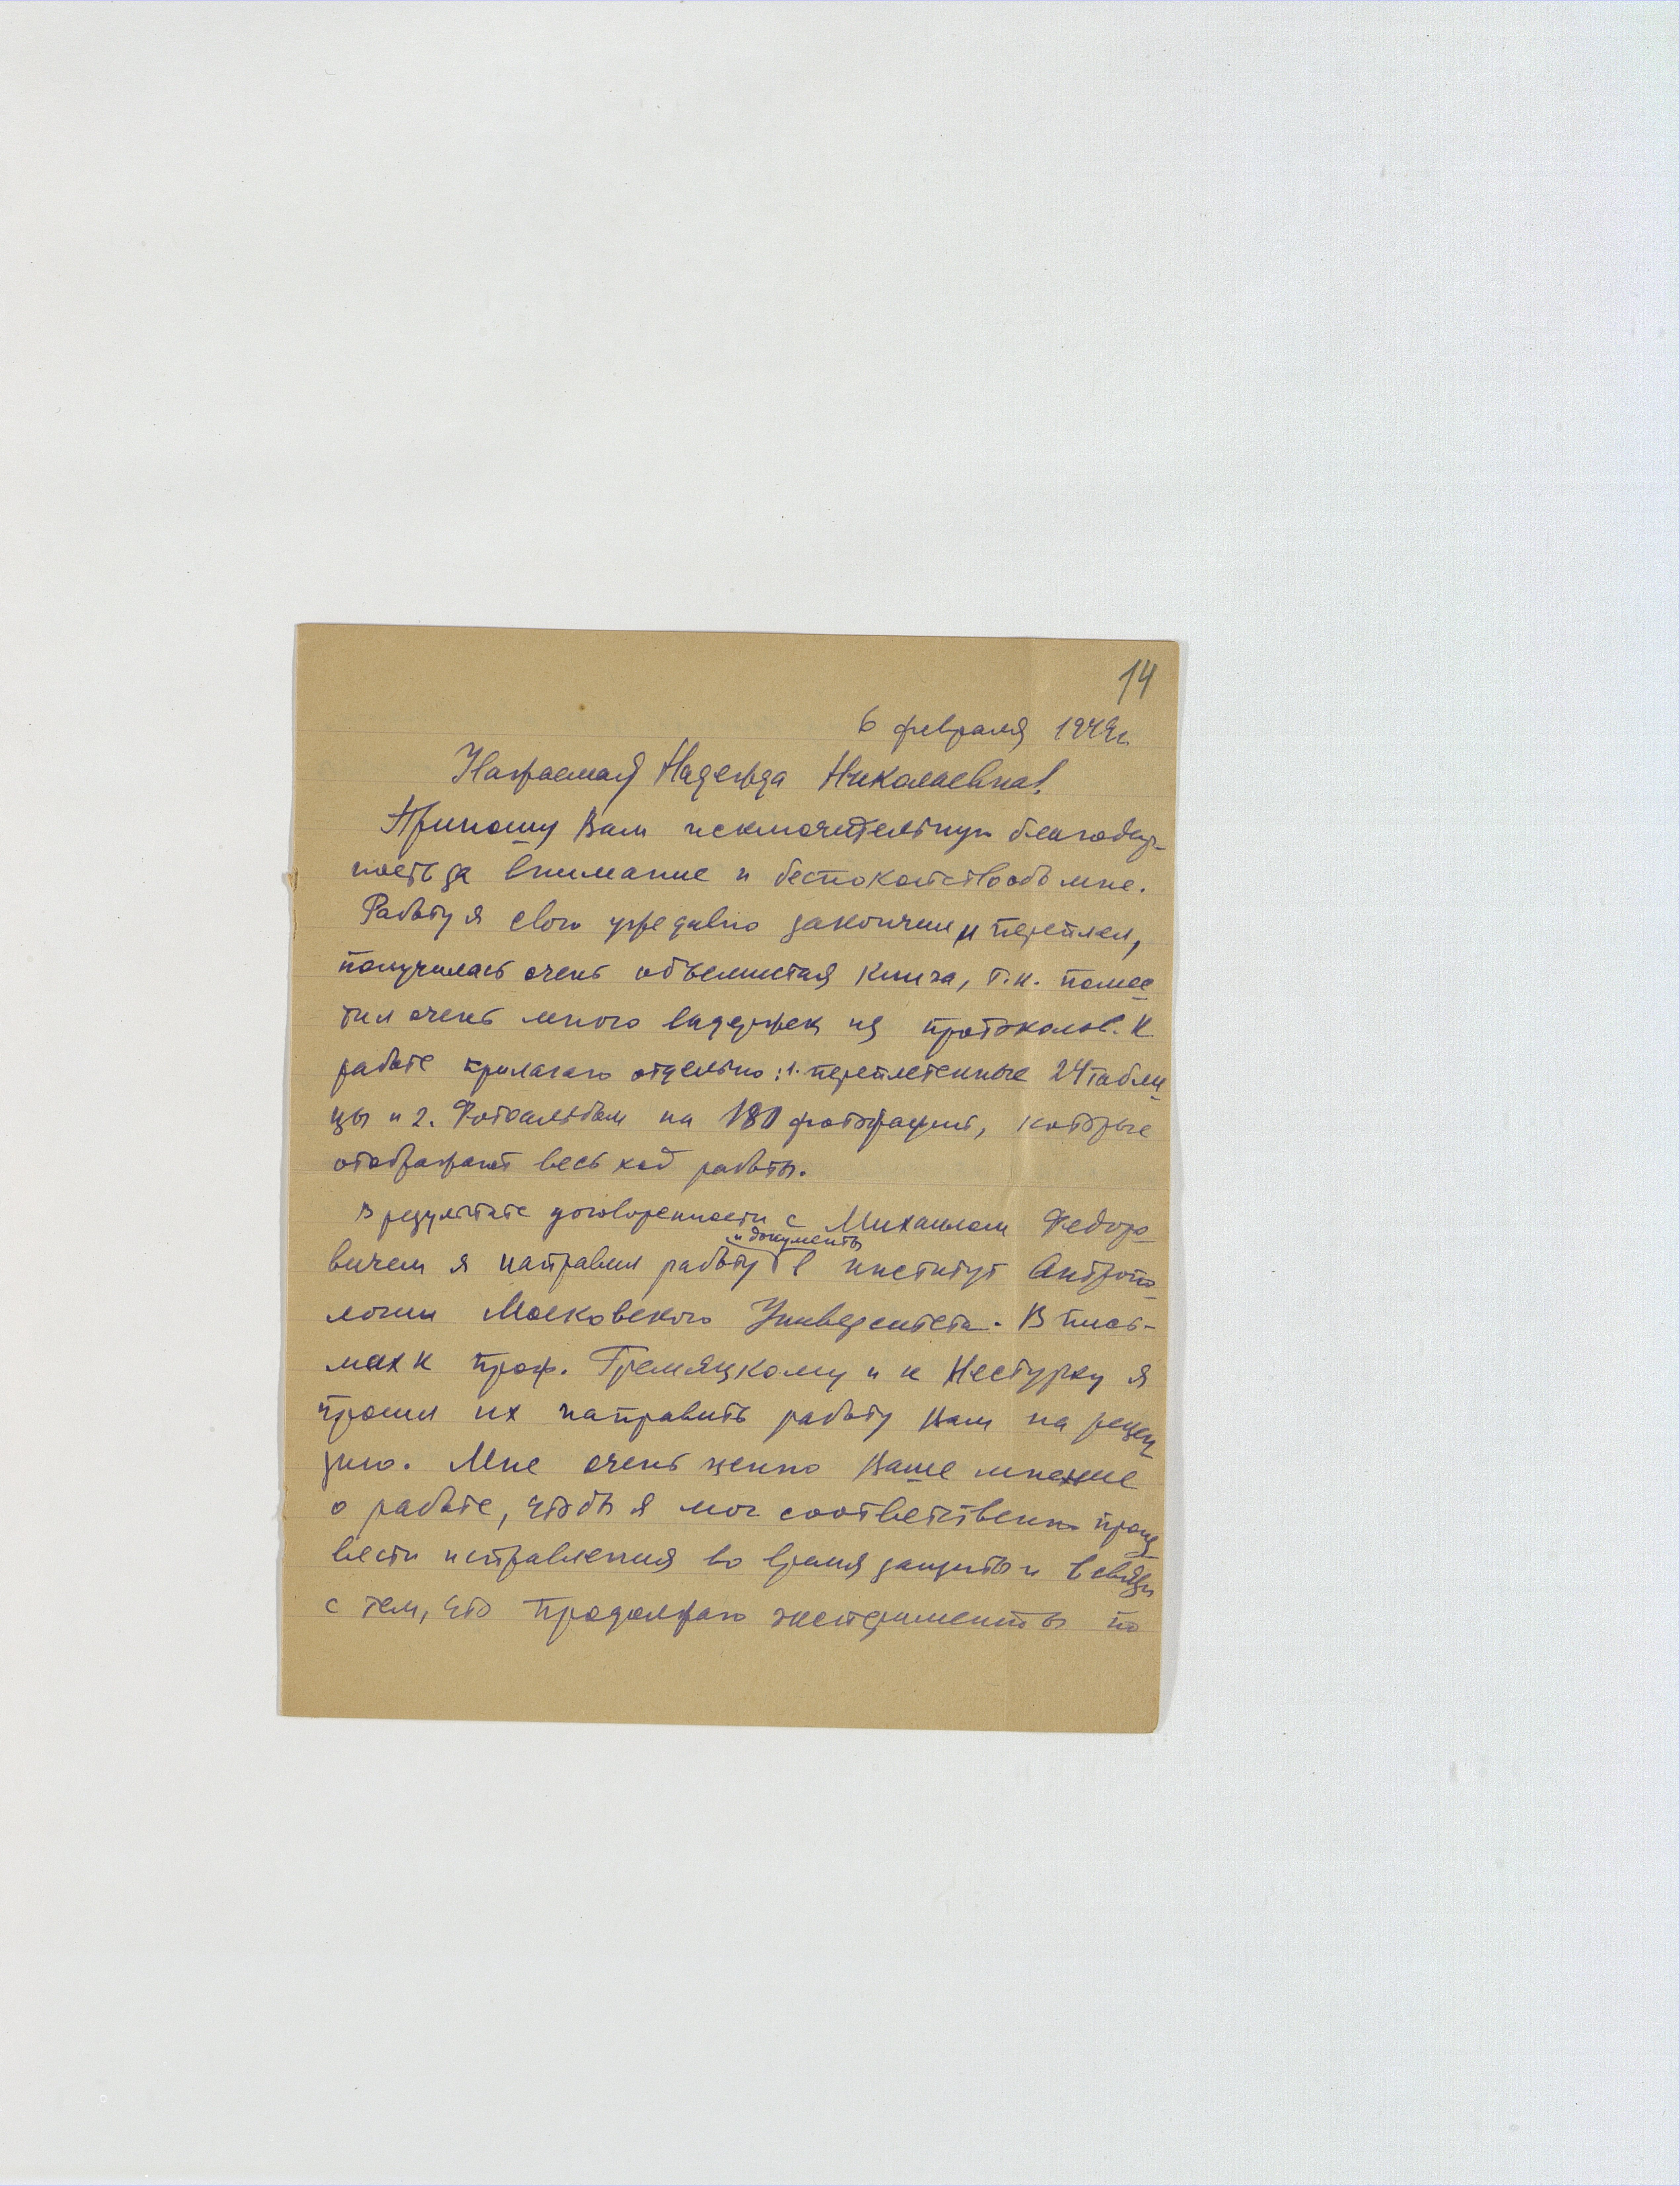 14
6 февраля 1949г.
Уважаемая Надежда Николаевна!
Приношу Вам исключительную благодар-
ность за внимание и беспокойство обо мне.
Работу я свою уже давно закончил и переплел,
получилась очень объемистая книга, т.к. помес
тил очень много выдержек из протоколов. К
работе прилагаю отдельно: 1. переплетенные 24 табли
цы и 2. Фотоальбом на 180 фотографий, которые
отображают весь ход работы.
В результате договоренности с Михаилом Федоро
и документы
вичем я направил работу в институт Антропо
логии Московского Университета. В пись-
мах к проф. Гремяцкому и к Нестурху я
просил их направить работу Вам на рецен
зию. Мне очень ценно Ваше мнение
о работе, чтобы я мог соответственно произ
вести исправления во время защиты и в связи
с тем, что продолжаю эксперименты по